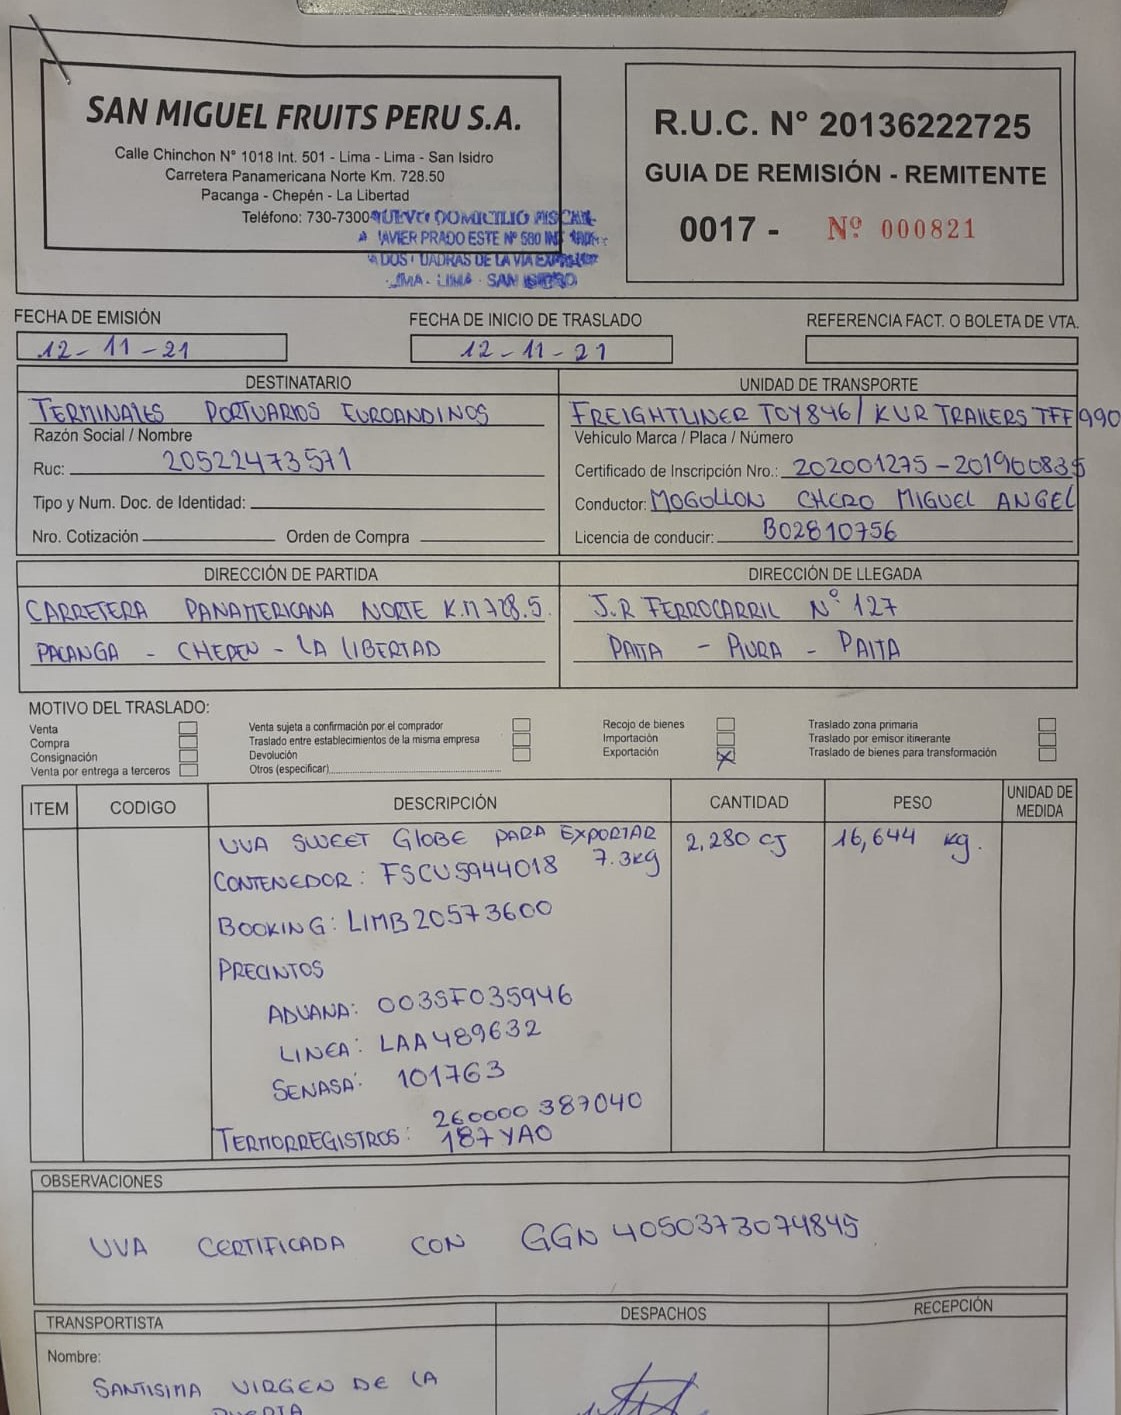 SAN MIGUEL FRUITS PERU S.A.
Calle Chinchon N° 1018 Int. 501 - Lima - Lima - San Isidro
Carretera Panamericana Norte Km. 728.50
Pacanga - Chepén - La Libertad
Teléfono: 730-7300
NUEVO DOMICILIO FISCAL
JAVIER PRADO ESTE Nº 580 INT
DOS CUADRAS DE LA VIA EXPRESA
LIMA - LIMA - SAN ISIDRO
R.U.C. N° 20136222725
GUIA DE REMISIÓN - REMITENTE
0017 - Nº 000821
FECHA DE EMISIÓN
12-11-21
FECHA DE INICIO DE TRASLADO
12-11-21
REFERENCIA FACT. O BOLETA DE VTA.
DESTINATARIO
TERMINALES PORTUARIOS EUROANDINOS
Razón Social / Nombre
Ruc: 20522473571
Tipo y Num. Doc. de Identidad:
Nro. Cotización Orden de Compra
UNIDAD DE TRANSPORTE
FREIGHTLINER TOY846 / KUR TRAILERS TFF990
Vehículo Marca / Placa / Número
Certificado de Inscripción Nro.: 202001275-2019600835
Conductor: MOGOLLON CHERO MIGUEL ANGEL
Licencia de conducir: B02810756
DIRECCIÓN DE PARTIDA
CARRETERA PANAMERICANA NORTE K.M 728.5
PACANGA - CHEPEN - LA LIBERTAD
DIRECCIÓN DE LLEGADA
J.R FERROCARRIL N° 127
PAITA - PIURA - PAITA
MOTIVO DEL TRASLADO:
Venta
Compra
Consignación
Venta por entrega a terceros
Venta sujeta a confirmación por el comprador
Traslado entre establecimientos de la misma empresa
Devolución
Otros (especificar)
Recojo de bienes
Importación
Exportación X
Traslado zona primaria
Traslado por emisor itinerante
Traslado de bienes para transformación
ITEM CODIGO DESCRIPCIÓN CANTIDAD PESO UNIDAD DE MEDIDA
UVA SWEET GLOBE PARA EXPORTAR 2,280 CJ 16,644 kg.
7.3kg
CONTENEDOR: FSCU5944018
BOOKING: LIMB20573600
PRECINTOS
ADUANA: 003SF035946
LINEA: LAA489632
SENASA: 101763
260000387040
TERMORREGISTROS: 187YAO
OBSERVACIONES
UVA CERTIFICADA CON GGN 4050373074845
TRANSPORTISTA
Nombre:
SANTISIMA VIRGEN DE LA
PUERTA
DESPACHOS
RECEPCIÓN